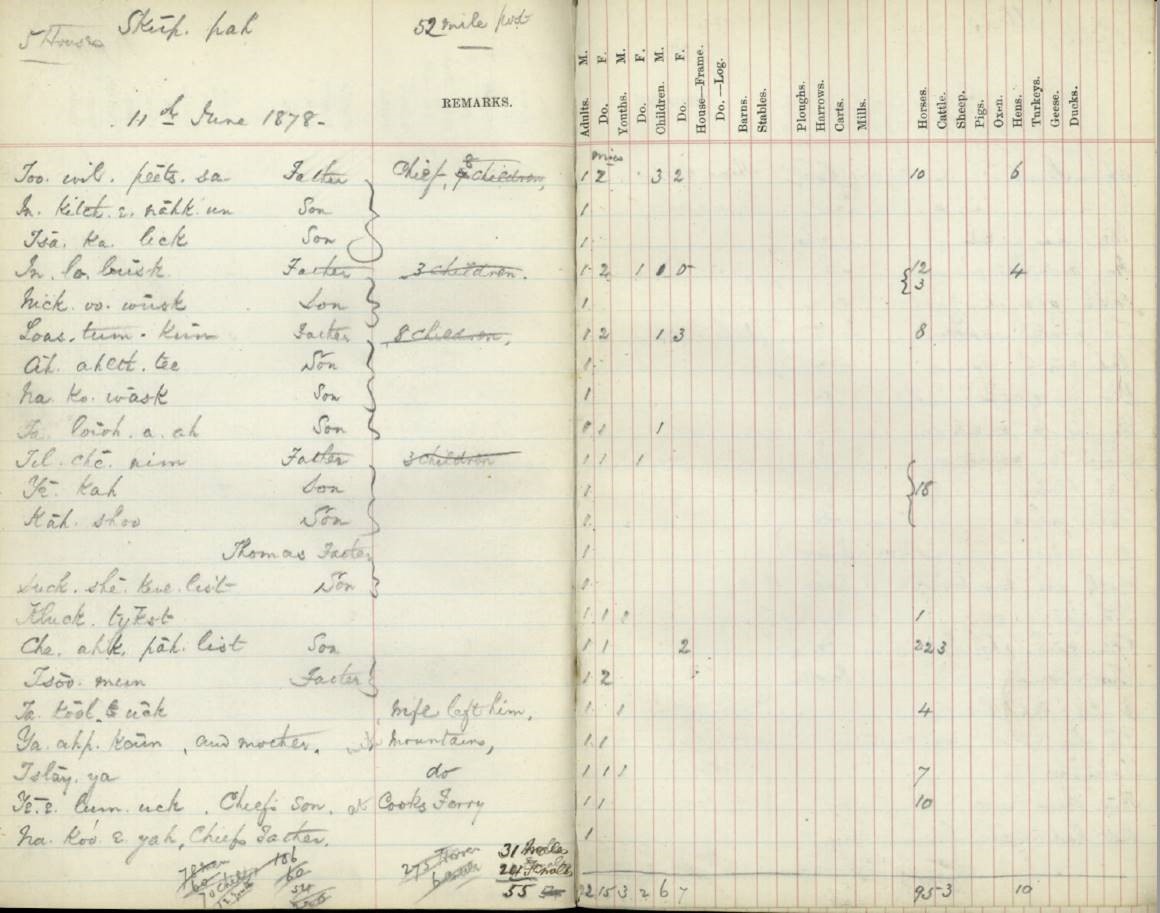 5 Houses Skup. pah 52 mile post
11th June 1878-
REMARKS.
Adults. M. Do. F. Youths. M. Do. F. Children. M. Do. F. House—Frame. Do. —Log. Barns. Stables. Ploughs. Harrows. Carts. Mills. Horses. Cattle. Sheep. Pigs. Oxen. Hens. Turkeys. Geese. Ducks.
Too. wil. peets. sa Father Chief, 8 children, 1 2 3 2 10 6
In. Kilet. e. nāhk. un Son 1
Tsā. Ka. lick Son 1
In. la. busk Father 3 children. 1 2 1 12 3 4
Nick. oo. wusk Son 1
Loas. tum. Kun Father 8 children, 1 2 1 3 8
Ah. ahett. tee Son 1
Na. Ko. wāsk Son 1
loioh. a. ah Son 1 1
Tel. chē. nim Father 3 children 1 1 1
Yē. Kah Son 1 18
Kāh. shoo Son 1
Thomas Father 1
Suck. shē. Kee. list Son 1
Kluck. tykst 1 1 1
Cha. ahk. pāh. list Son 1 1 2 22 3
Tsōo. mun Father 1 2
Ta. Kool. uāk Wife left him, 1 1 4
Ya. ahp. Kaun, and mother, mountains, 1 1
Tslāy. ya do 1 1 1 7
Yē. e. lum. uck, Chief's Son, at Cooks Ferry 1 1 10
Na. Koo. e. yah, Chiefs Father, 1
31 Males
24 Females
55
22 15 3 2 6 7 95 3 10